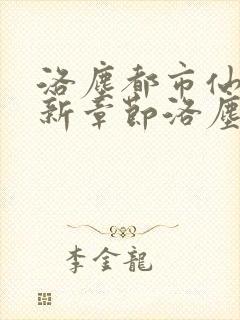 洛塵都市仙
新章節洛塵
李金龍